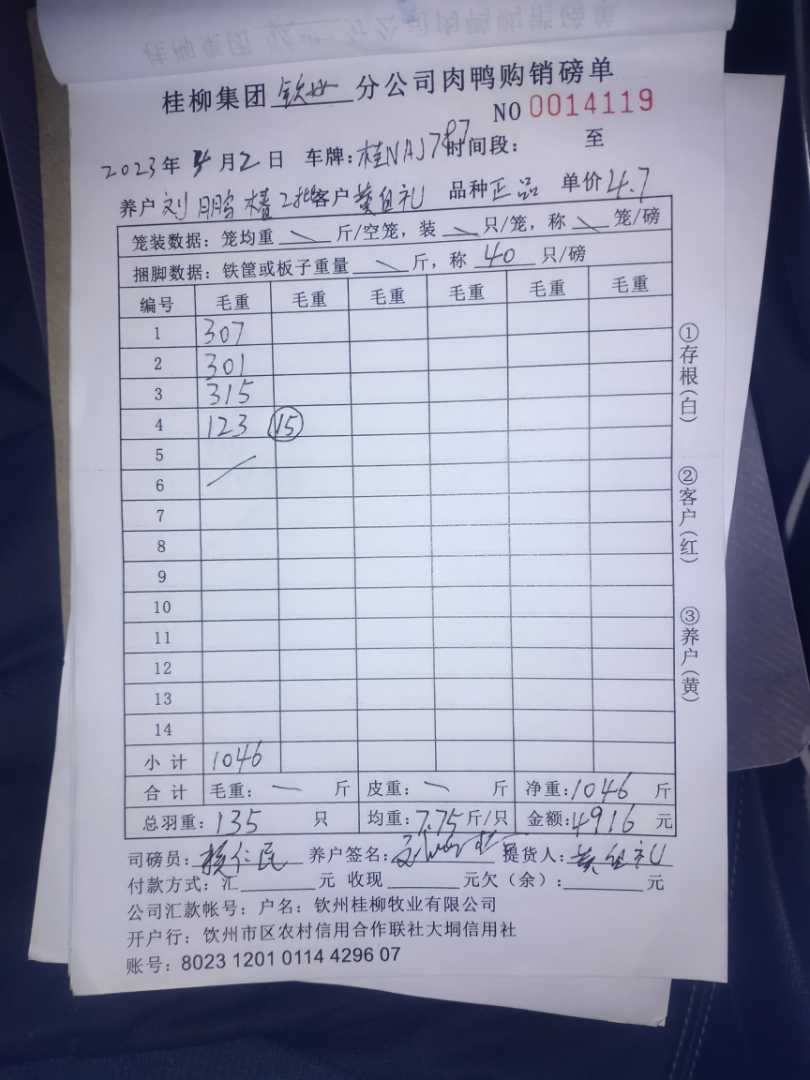 桂柳集团 钦州 分公司肉鸭购销磅单
NO 0014119
2023年4月2日 车牌:桂NAJ787 时间段: 至
养户 刘鹏 2批 客户 黄组礼 品种 正品 单价 4.7
笼装数据:笼均重 斤/空笼,装 只/笼,称 笼/磅
捆脚数据:铁筐或板子重量 斤,称 40 只/磅
编号 毛重 毛重 毛重 毛重 毛重 毛重
1 307
2 301
3 315
4 123 15
5
6
7
8
9
10
11
12
13
14
小计 1046
合计 毛重: 一 斤 皮重: 斤 净重:1046 斤
总羽重:135 只 均重:7.75斤/只 金额:4916 元
司磅员:赖仁民 养户签名: 提货人:黄组礼
付款方式:汇 元 收现 元欠(余): 元
公司汇款帐号:户名:钦州桂柳牧业有限公司
开户行:饮州市区农村信用合作联社大垌信用社
账号:8023 1201 0114 4296 07
①存根(白)
②客户(红)
③养户(黄)